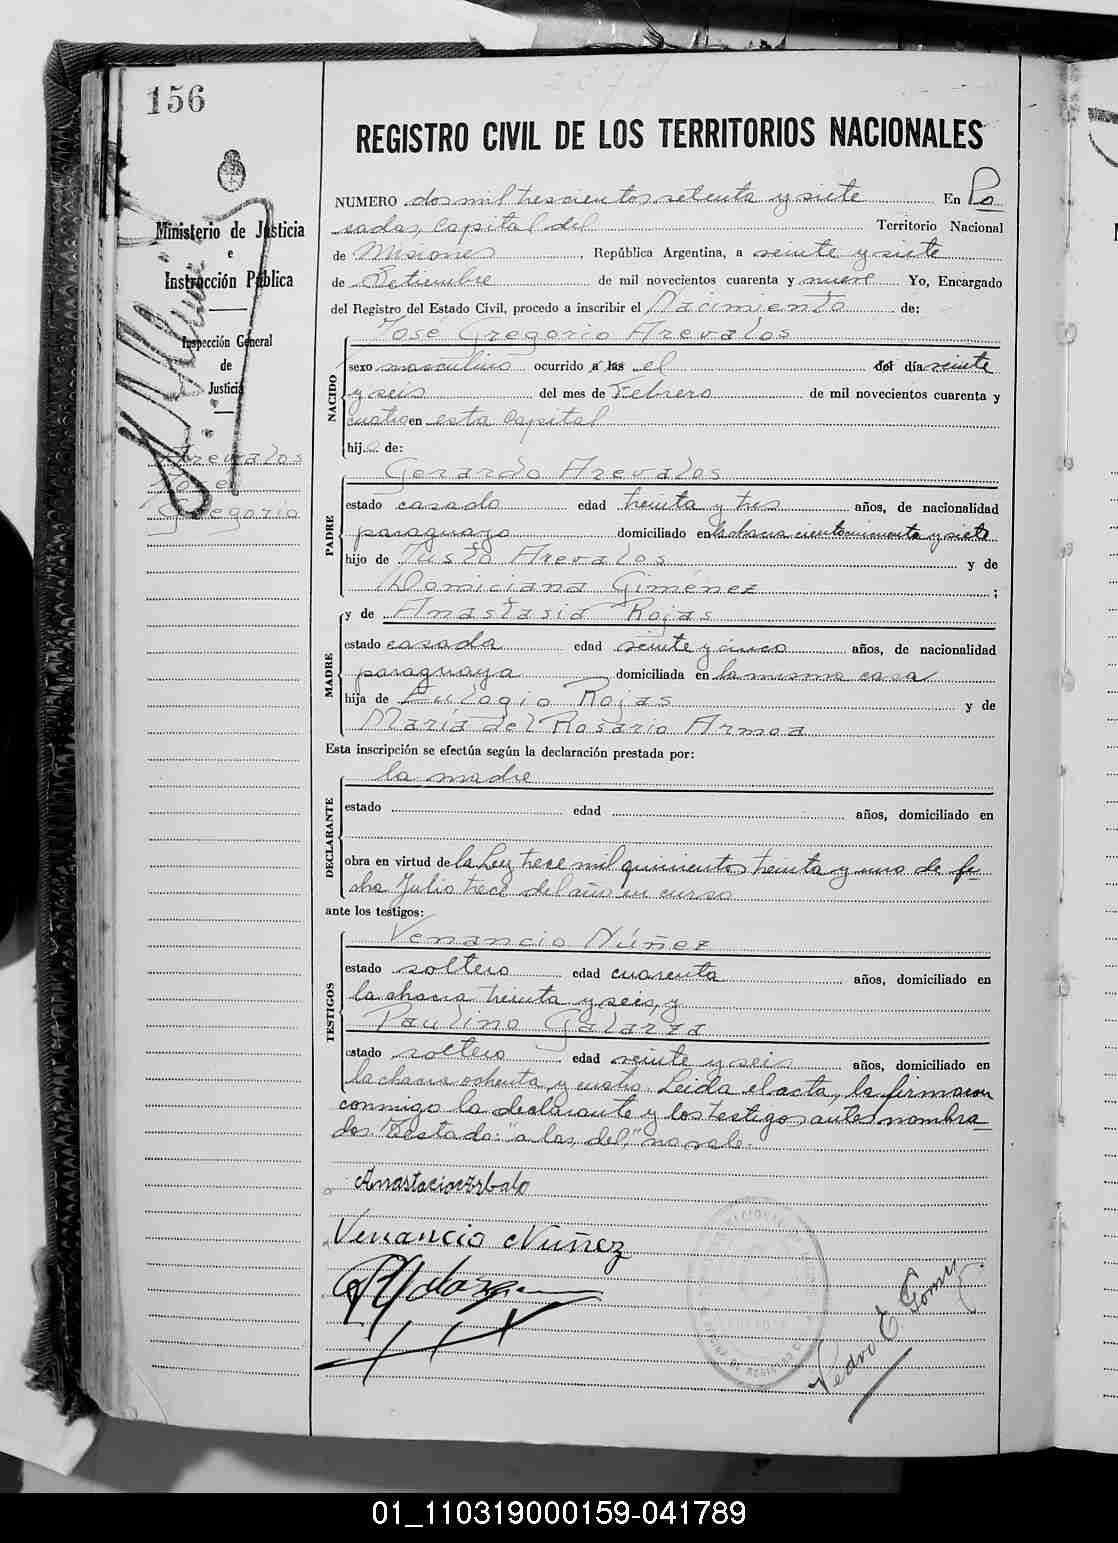 156
Ministerio de Justicia
e
Instrucción Pública
Inspección General
de
Justicia
Arevalos
José
Gregorio
REGISTRO CIVIL DE LOS TERRITORIOS NACIONALES
NUMERO dos mil trescientos setenta y siete En Po
sadas, Capital del Territorio Nacional
de Misiones, República Argentina, a veinte y siete
de Setiembre de mil novecientos cuarenta y nueve Yo, Encargado
del Registro del Estado Civil, procedo a inscribir el Nacimiento de:
José Gregorio Arevalos
NACIDO
sexo masculino ocurrido a las el del día veinte
y seis del mes de Febrero de mil novecientos cuarenta y
cuatro en esta Capital
hijo de:
Gerardo Arevalos
PADRE
estado casado edad treinta y tres años, de nacionalidad
paraguayo domiciliado en la chacra ciento cincuenta y siete
hijo de Justo Arevalos y de
Domiciana Giménez ;
y de Anastasia Rojas
MADRE
estado casada edad veinte y cinco años, de nacionalidad
paraguaya domiciliada en la misma casa
hija de Eulogio Rojas y de
María del Rosario Armoa
Esta inscripción se efectúa según la declaración prestada por:
la madre
DECLARANTE
estado edad años, domiciliado en
obra en virtud de la Ley trece mil quinientos treinta y uno de fe
cha Julio trece del año en curso
ante los testigos:
Venancio Núñez
TESTIGOS
estado soltero edad cuarenta años, domiciliado en
la chacra treinta y seis, y
Paulino Galarza
estado soltero edad veinte y seis años, domiciliado en
la chacra ochenta y cuatro. Leida el acta, la firmaron
conmigo la declarante y los testigos antes nombra
dos. Testado: "a las, del," no vale.
Venancio Nuñez
Pedro E. Gomez
01_110319000159-041789